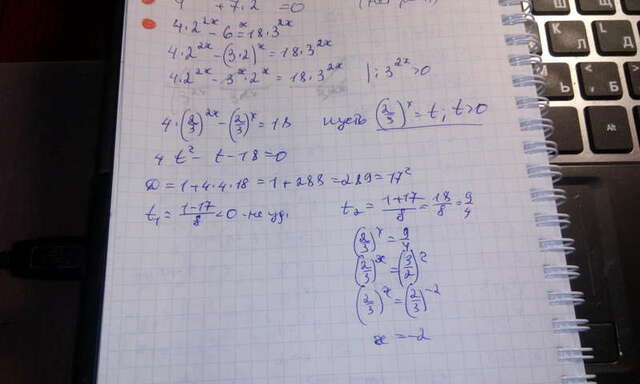 +7·2 =0
4·2^{2x} - 6^x = 18·3^{2x}
4·2^{2x} - (3·2)^x = 18·3^{2x}
4·2^{2x} - 3^x·2^x = 18·3^{2x} |: 3^{2x} >0
4·(2/3)^{2x} - (2/3)^x = 18 пусть (2/3)^x = t; t>0
4 t² - t - 18 = 0
D = 1+4·4·18 = 1+288 = 289 = 17²
t₁ = (1-17)/8 <0 - не уд. t₂ = (1+17)/8 = 18/8 = 9/4
(2/3)^x = 9/4
(2/3)^x = (3/2)^2
(2/3)^x = (2/3)^{-2}
x = -2
Alt